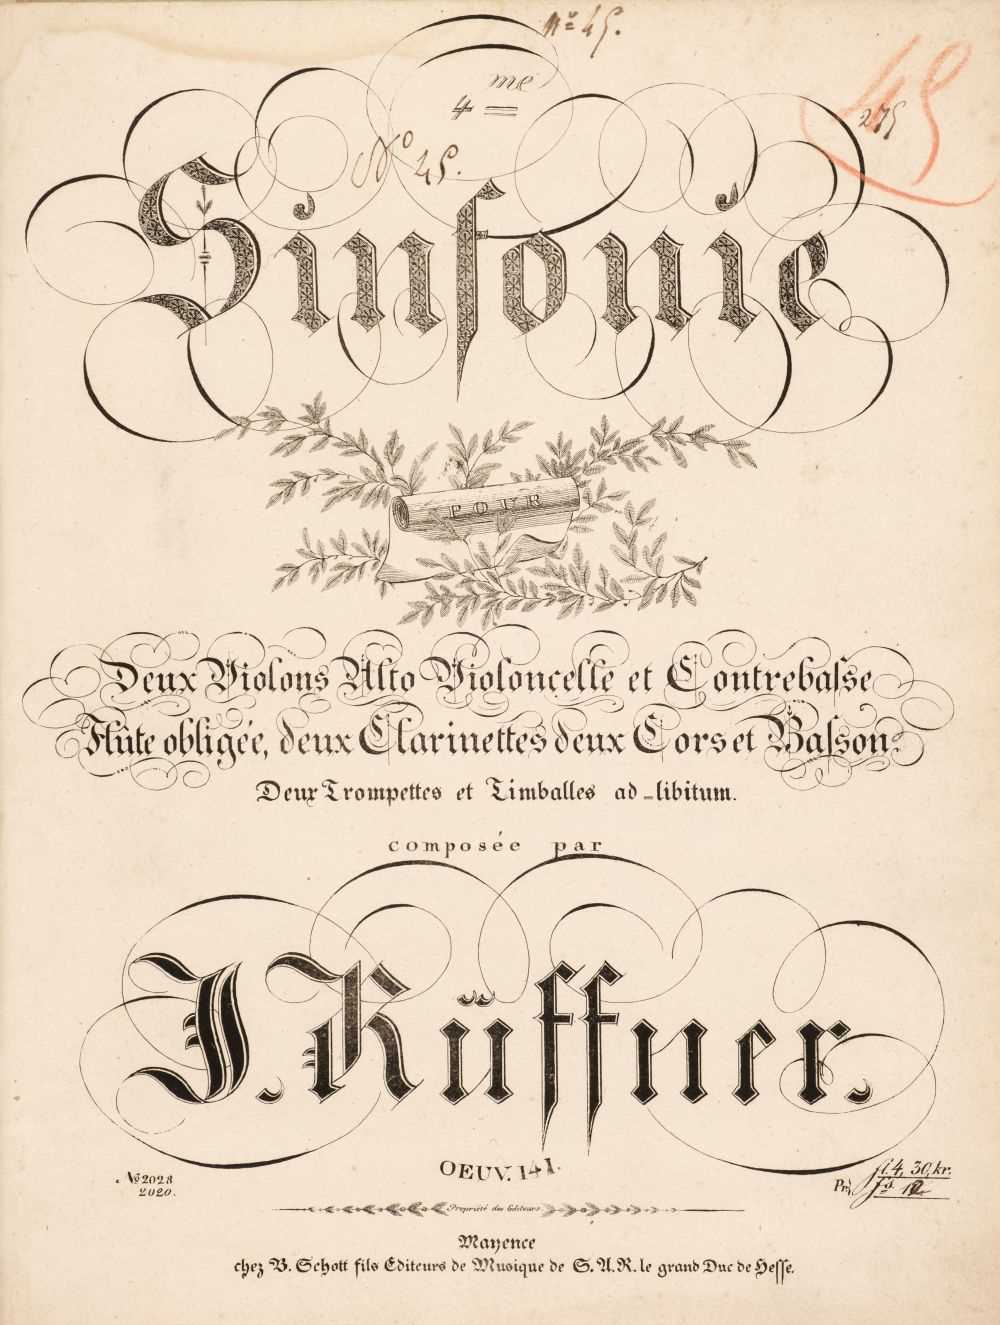 Nº 45.
4 me
45
275
Nº 45.
Sinfonie
POUR
Deux Violons Alto Violoncelle et Contrebaſse
Flûte obligée, deux Clarinettes deux Cors et Baſson.
Deux Trompettes et Timballes ad-libitum.
composée par
J. Küffner.
OEUV. 141.
Nº 2028
2020.
fl. 4, 30, kr.
Pr.
Propriété des Editeurs
Mayence
chez B. Schott fils Editeurs de Musique de S. A. R. le grand Duc de Heſſe.